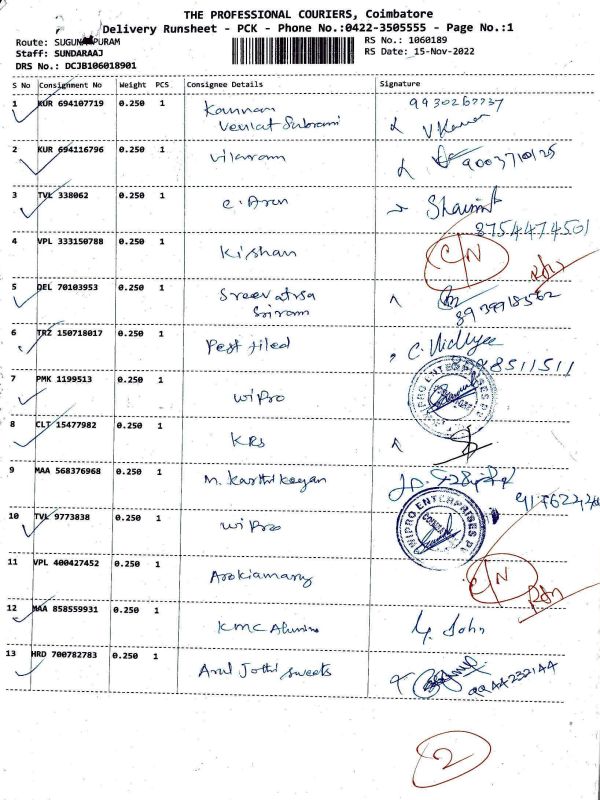 THE PROFESSIONAL COURIERS, Coimbatore
Delivery Runsheet - PCK - Phone No.:0422-3505555 - Page No.:1
Route: SUGUNAPURAM
Staff: SUNDARAAJ
DRS No.: DCJB106018901
RS No.: 1060189
RS Date: 15-Nov-2022
S No Consignment No Weight PCS Consignee Details Signature
1 KUR 694107719 0.250 1 Kannan
Venkat Subrami
2 KUR 694116796 0.250 1 9003710125
3 TVL 338062 0.250 1 C. Arun
8754474501
4 VPL 333150788 0.250 1 Kishan C/N
5 DEL 70103953 0.250 1 Sreevatsa
Sriram
6 TRZ 150718017 0.250 1 Pest filed C. Vidhya
8511511
7 PMK 1199513 0.250 1 Wipro WIPRO ENTERPRISES
8 CLT 15477982 0.250 1 KRS
9 MAA 568376968 0.250 1 M. Karthikeyan
10 TVL 9773838 0.250 1 Wipro WIPRO ENTERPRISES
11 VPL 400427452 0.250 1 Arokiamary C/N
12 MAA 858559931 0.250 1 KMC John
13 HRD 700782783 0.250 1 Arul Jothi Sweets 9944232144
2